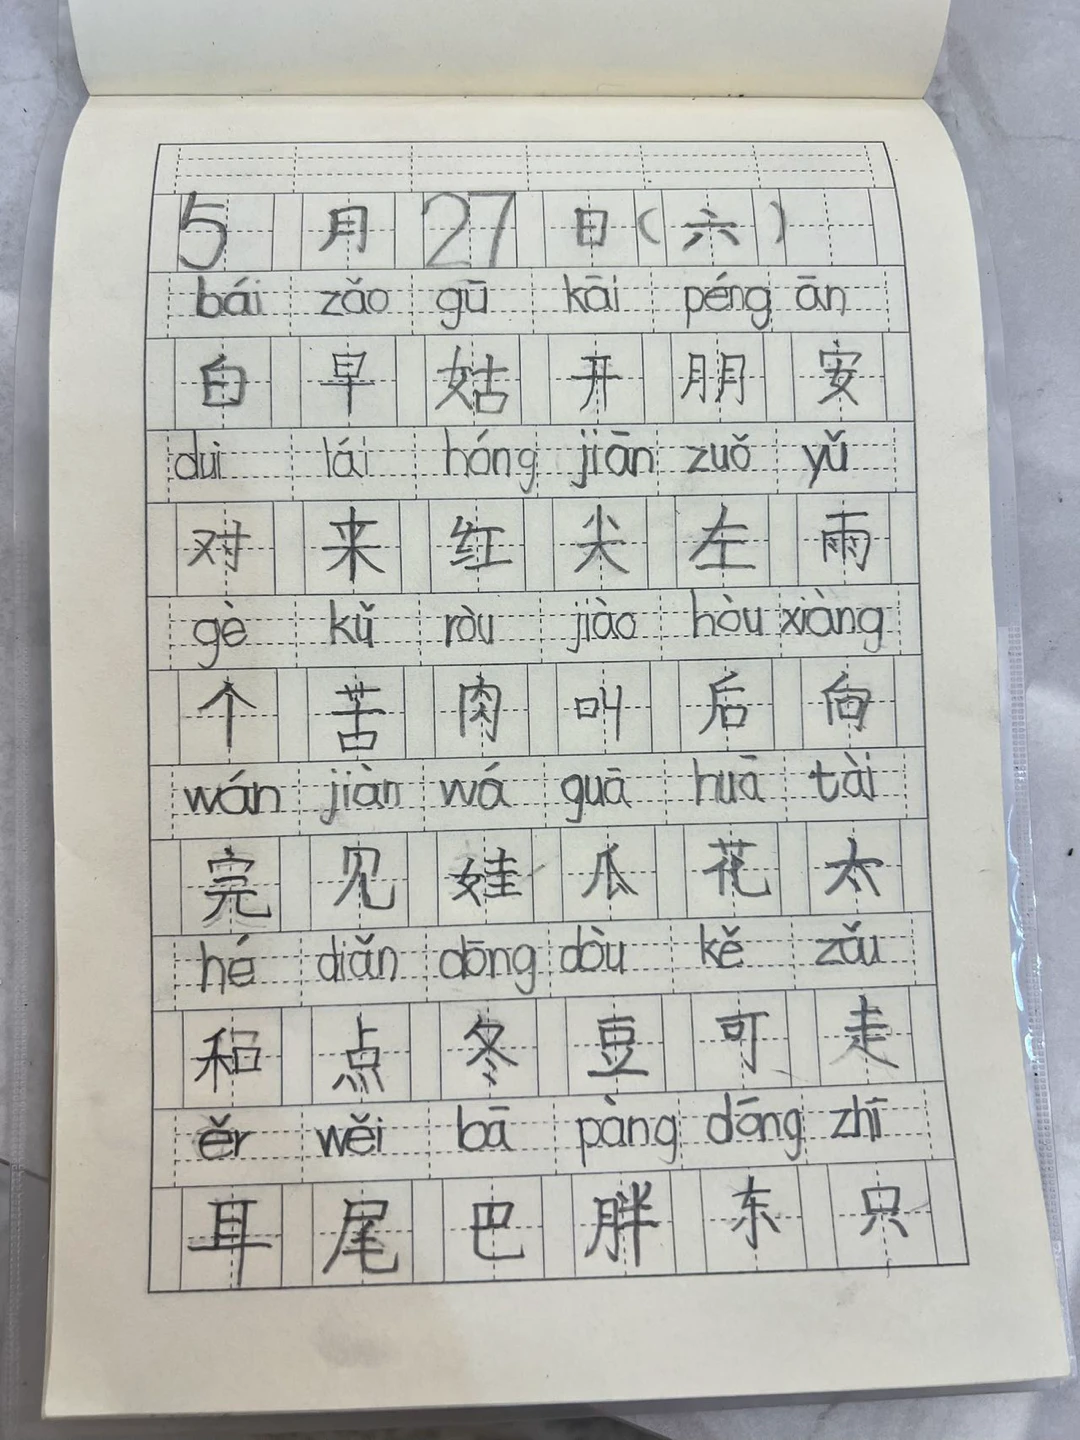 5月27日(六)
bái zǎo gū kāi péng ān
白 早 姑 开 朋 安
dui lái hóng jiān zuǒ yǔ
对 来 红 尖 左 雨
gè kǔ ròu jiào hòu xiàng
个 苦 肉 叫 后 向
wán jiàn wá guā huā tài
完 见 娃 瓜 花 太
hé diǎn dōng dòu kě zǎu
和 点 冬 豆 可 走
ěr wěi bā pàng dōng zhī
耳 尾 巴 胖 东 只